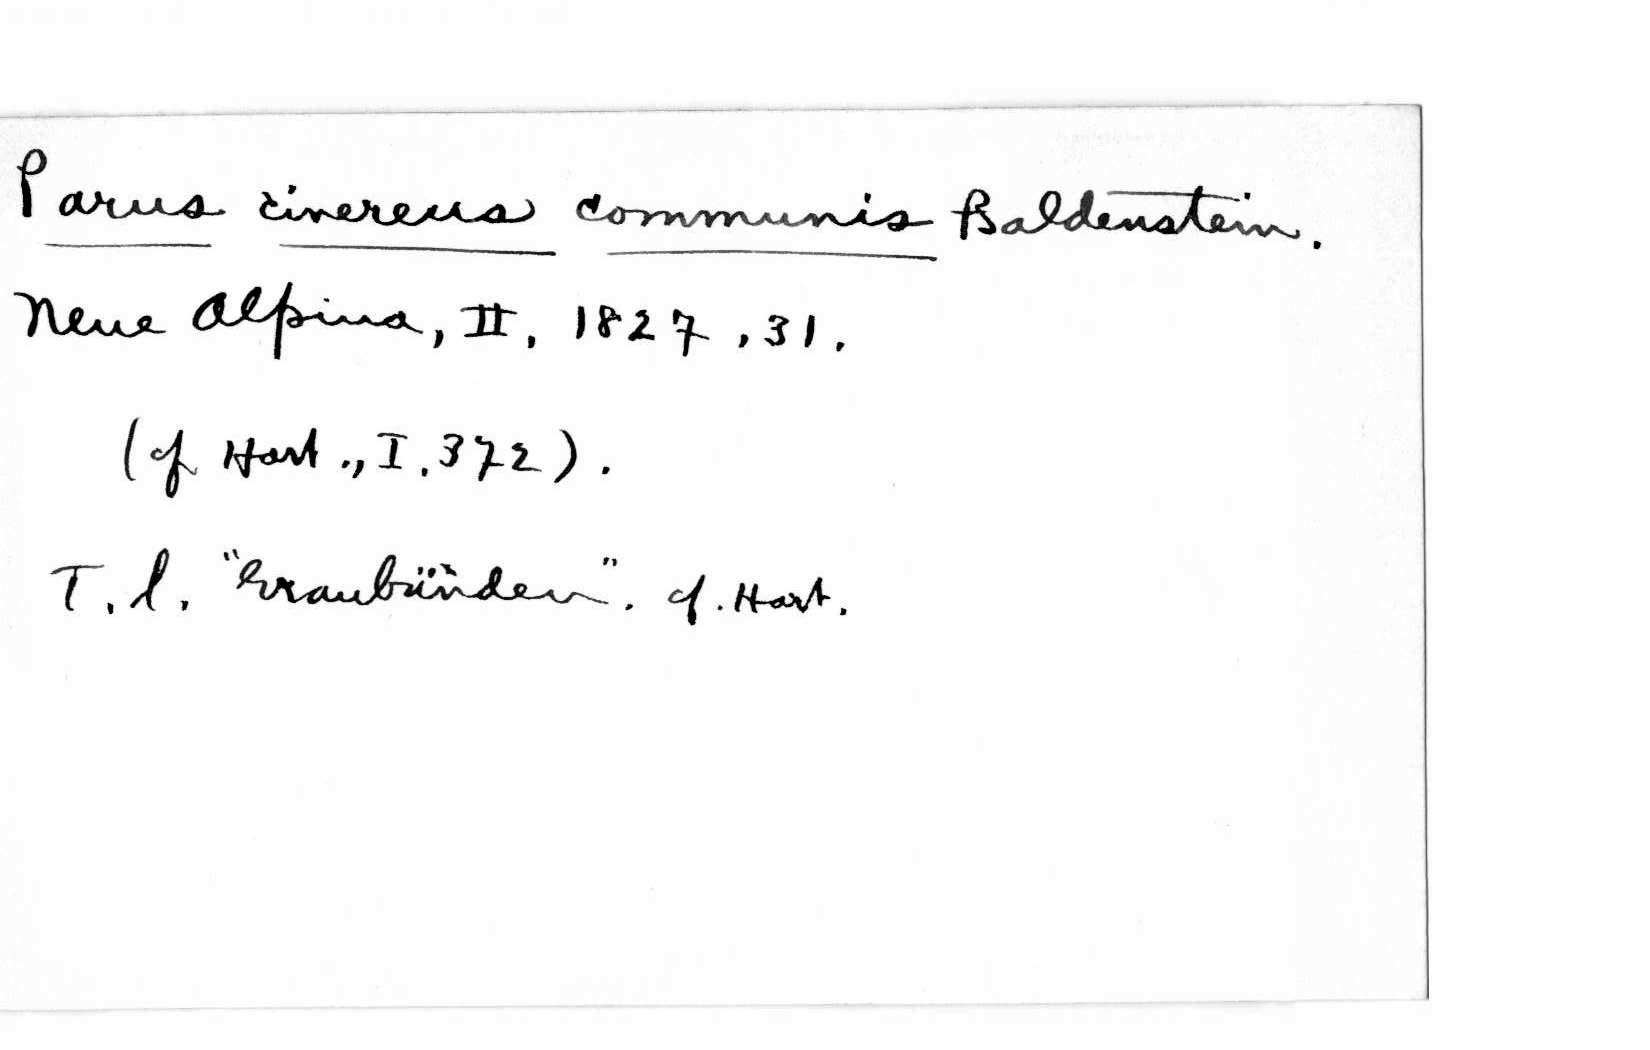 Parus cinereus communis Baldenstein.
Neue Alpina, II, 1827, 31.
(cf Hart., I.372).
T.l. "Graubünden". cf. Hart.